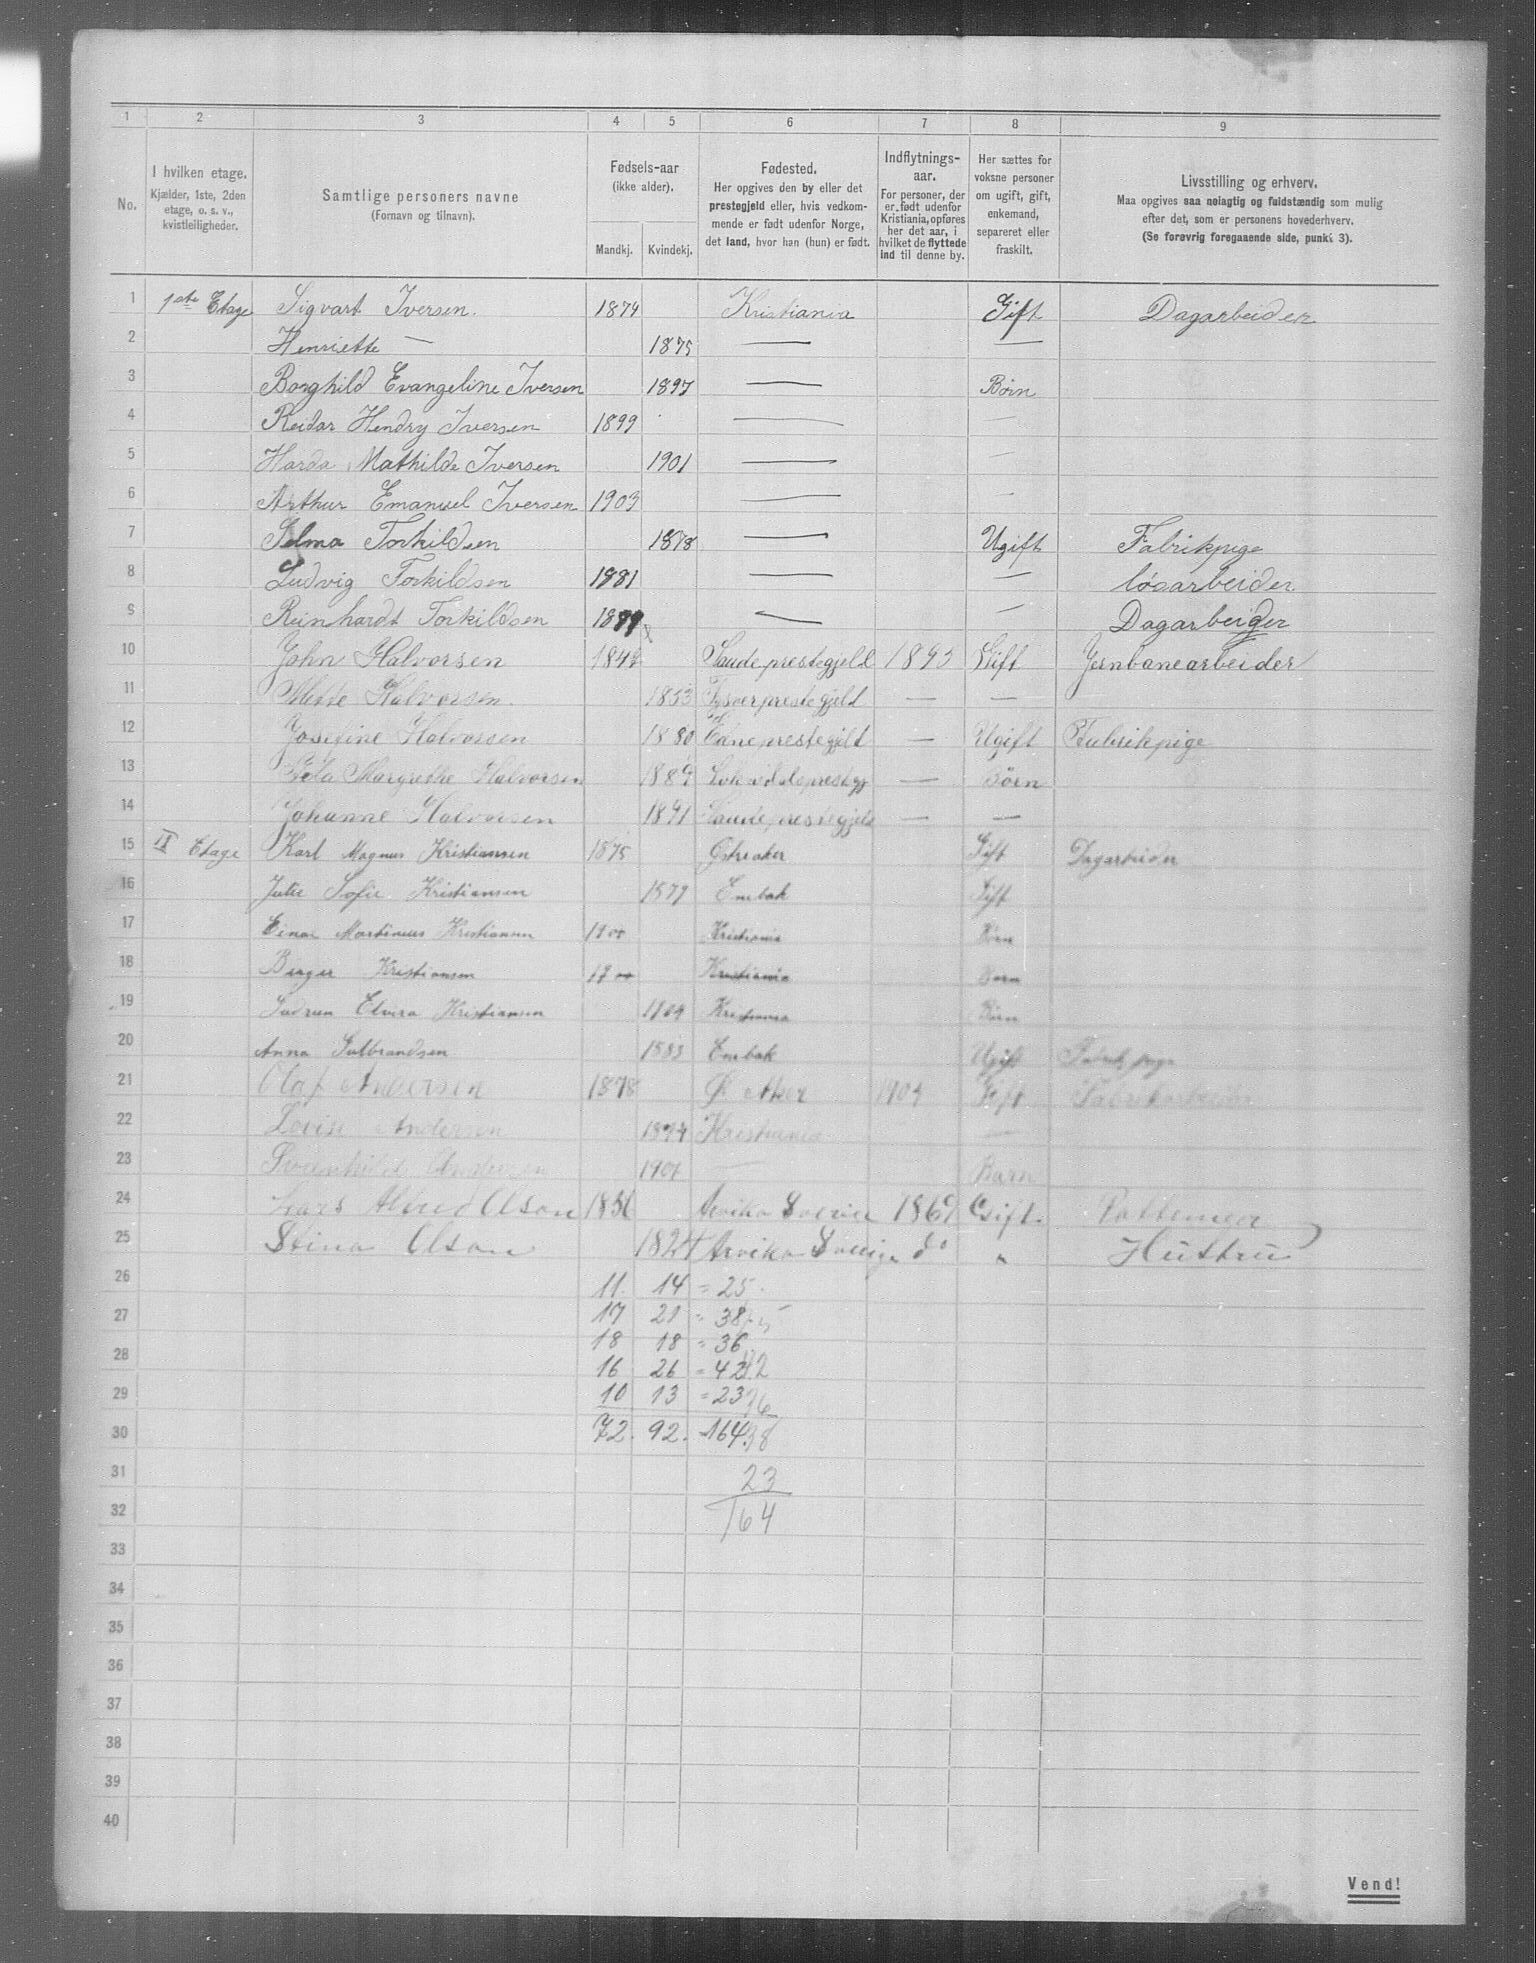 1 2 3 4 5 6 7 8 9
No.
I hvilken etage.
Kjælder, 1ste, 2den
etage, o. s. v.,
kvistleiligheder.
Samtlige personers navne
(Fornavn og tilnavn).
Fødsels-aar
(ikke alder).
Mandkj. Kvindekj.
Fødested.
Her opgives den by eller det
prestegjeld eller, hvis vedkom-
mende er født udenfor Norge,
det land, hvor han (hun) er født.
Indflytnings-
aar.
For personer, der
er født udenfor
Kristiania, opføres
her det aar, i
hvilket de flyttede
ind til denne by.
Her sættes for
voksne personer
om ugift, gift,
enkemand,
separeret eller
fraskilt.
Livsstilling og erhverv.
Maa opgives saa nøiagtig og fuldstændig som mulig
efter det, som er personens hovederhverv.
(Se forøvrig foregaaende side, punkt 3).
1 1ste Etage Sigvart Iversen. 1874 Kristiania Gift Dagarbeider
2 Henriette — 1875 — —
3 Borghild Evangeline Iversen 1897 — Børn
4 Reidar Hendry Iversen 1899 — —
5 Harda Mathilde Iversen 1901 — —
6 Arthur Emanuel Iversen 1903 — —
7 Selma Torkildsen 1878 — Ugift Fabrikpige
8 Ludvig Torkildsen 1881 — — løsarbeider
9 Reinhardt Torkildsen — — Dagarbeider
10 John Halvorsen Saude prestegjeld 1893 Gift Jernbanearbeider
11 Mette Halvorsen. 1853 prestegjeld — —
12 Josefine Halvorsen 1880 prestegjeld — Ugift Fabrikpige
13 Margrethe Halvorsen 1889 — Børn
14 Johanne Halvorsen 1891 Saude prestegjeld — —
15 II Etage Karl Magnus Kristiansen 1875 Østreaker Gift Dagarbeider
16 Julie Sofie Kristiansen 1877 Enebak Gift
17 Einar Martinius Kristiansen 1900 Kristiania Børn
18 Birger Kristiansen 1900 Kristiania Børn
19 Gudrun Elvira Kristiansen 1904 Kristiania Børn
20 Anna Gulbrandsen 1883 Enebak Ugift Fabrik pige
21 Olaf Andersen 1878 Ø Aker 1904 Gift Fabrikarbeider
22 Lovise Andersen 1874 Kristiania —
23 Svanhild Andersen 1901 — Barn
24 Lars Alfred Olson Arvika Sverige 1869 Gift.
25 Stina Olson 1824 Arvika Sverige do " Hustru
26 11 14 = 25
27 17 21 = 38
28 18 18 = 36
16 26 = 42
29 10 13 = 23
30 72. 92. 164.
31 23
32 164
33
34
35
36
37
38
39
40
Vend!